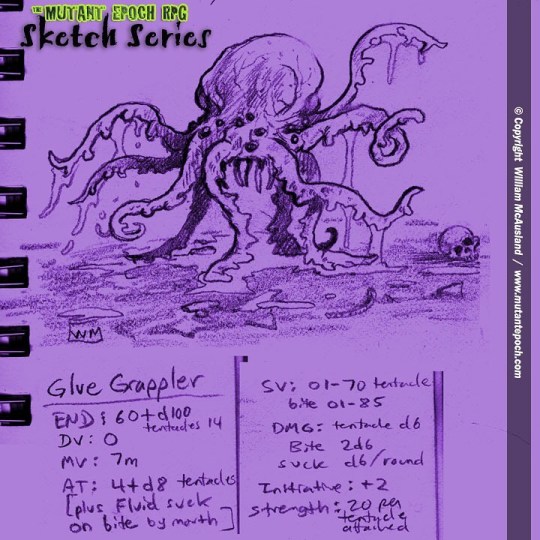 THE MUTANT EPOCH RPG
Sketch Series
© Copyright William McAusland / www.mutantepoch.com
WM
Glue Grappler
END: 60+d100
tentacles 14
DV: 0
MV: 7m
AT: 4+d8 tentacles
[plus Fluid suck
on bite by mouth]
SV: 01-70 tentacle
bite 01-85
DMG: tentacle d6
Bite 2d6
suck d6/round
Initiative: +2
strength: 20 per
tentacle
attached